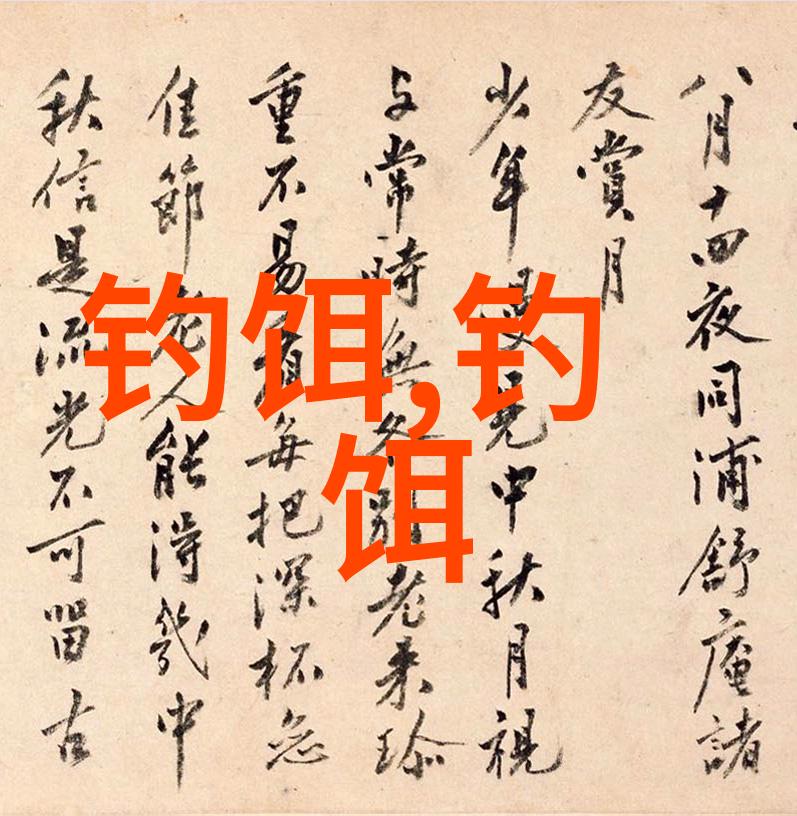 八月十四夜同浦舒庵諸
友賞月
少年漫見中秋月視
与常時無各別老来珍
重不易看每把深杯
佳節老人能得幾中
秋信是流光不可留古
钓饵,钓
饵